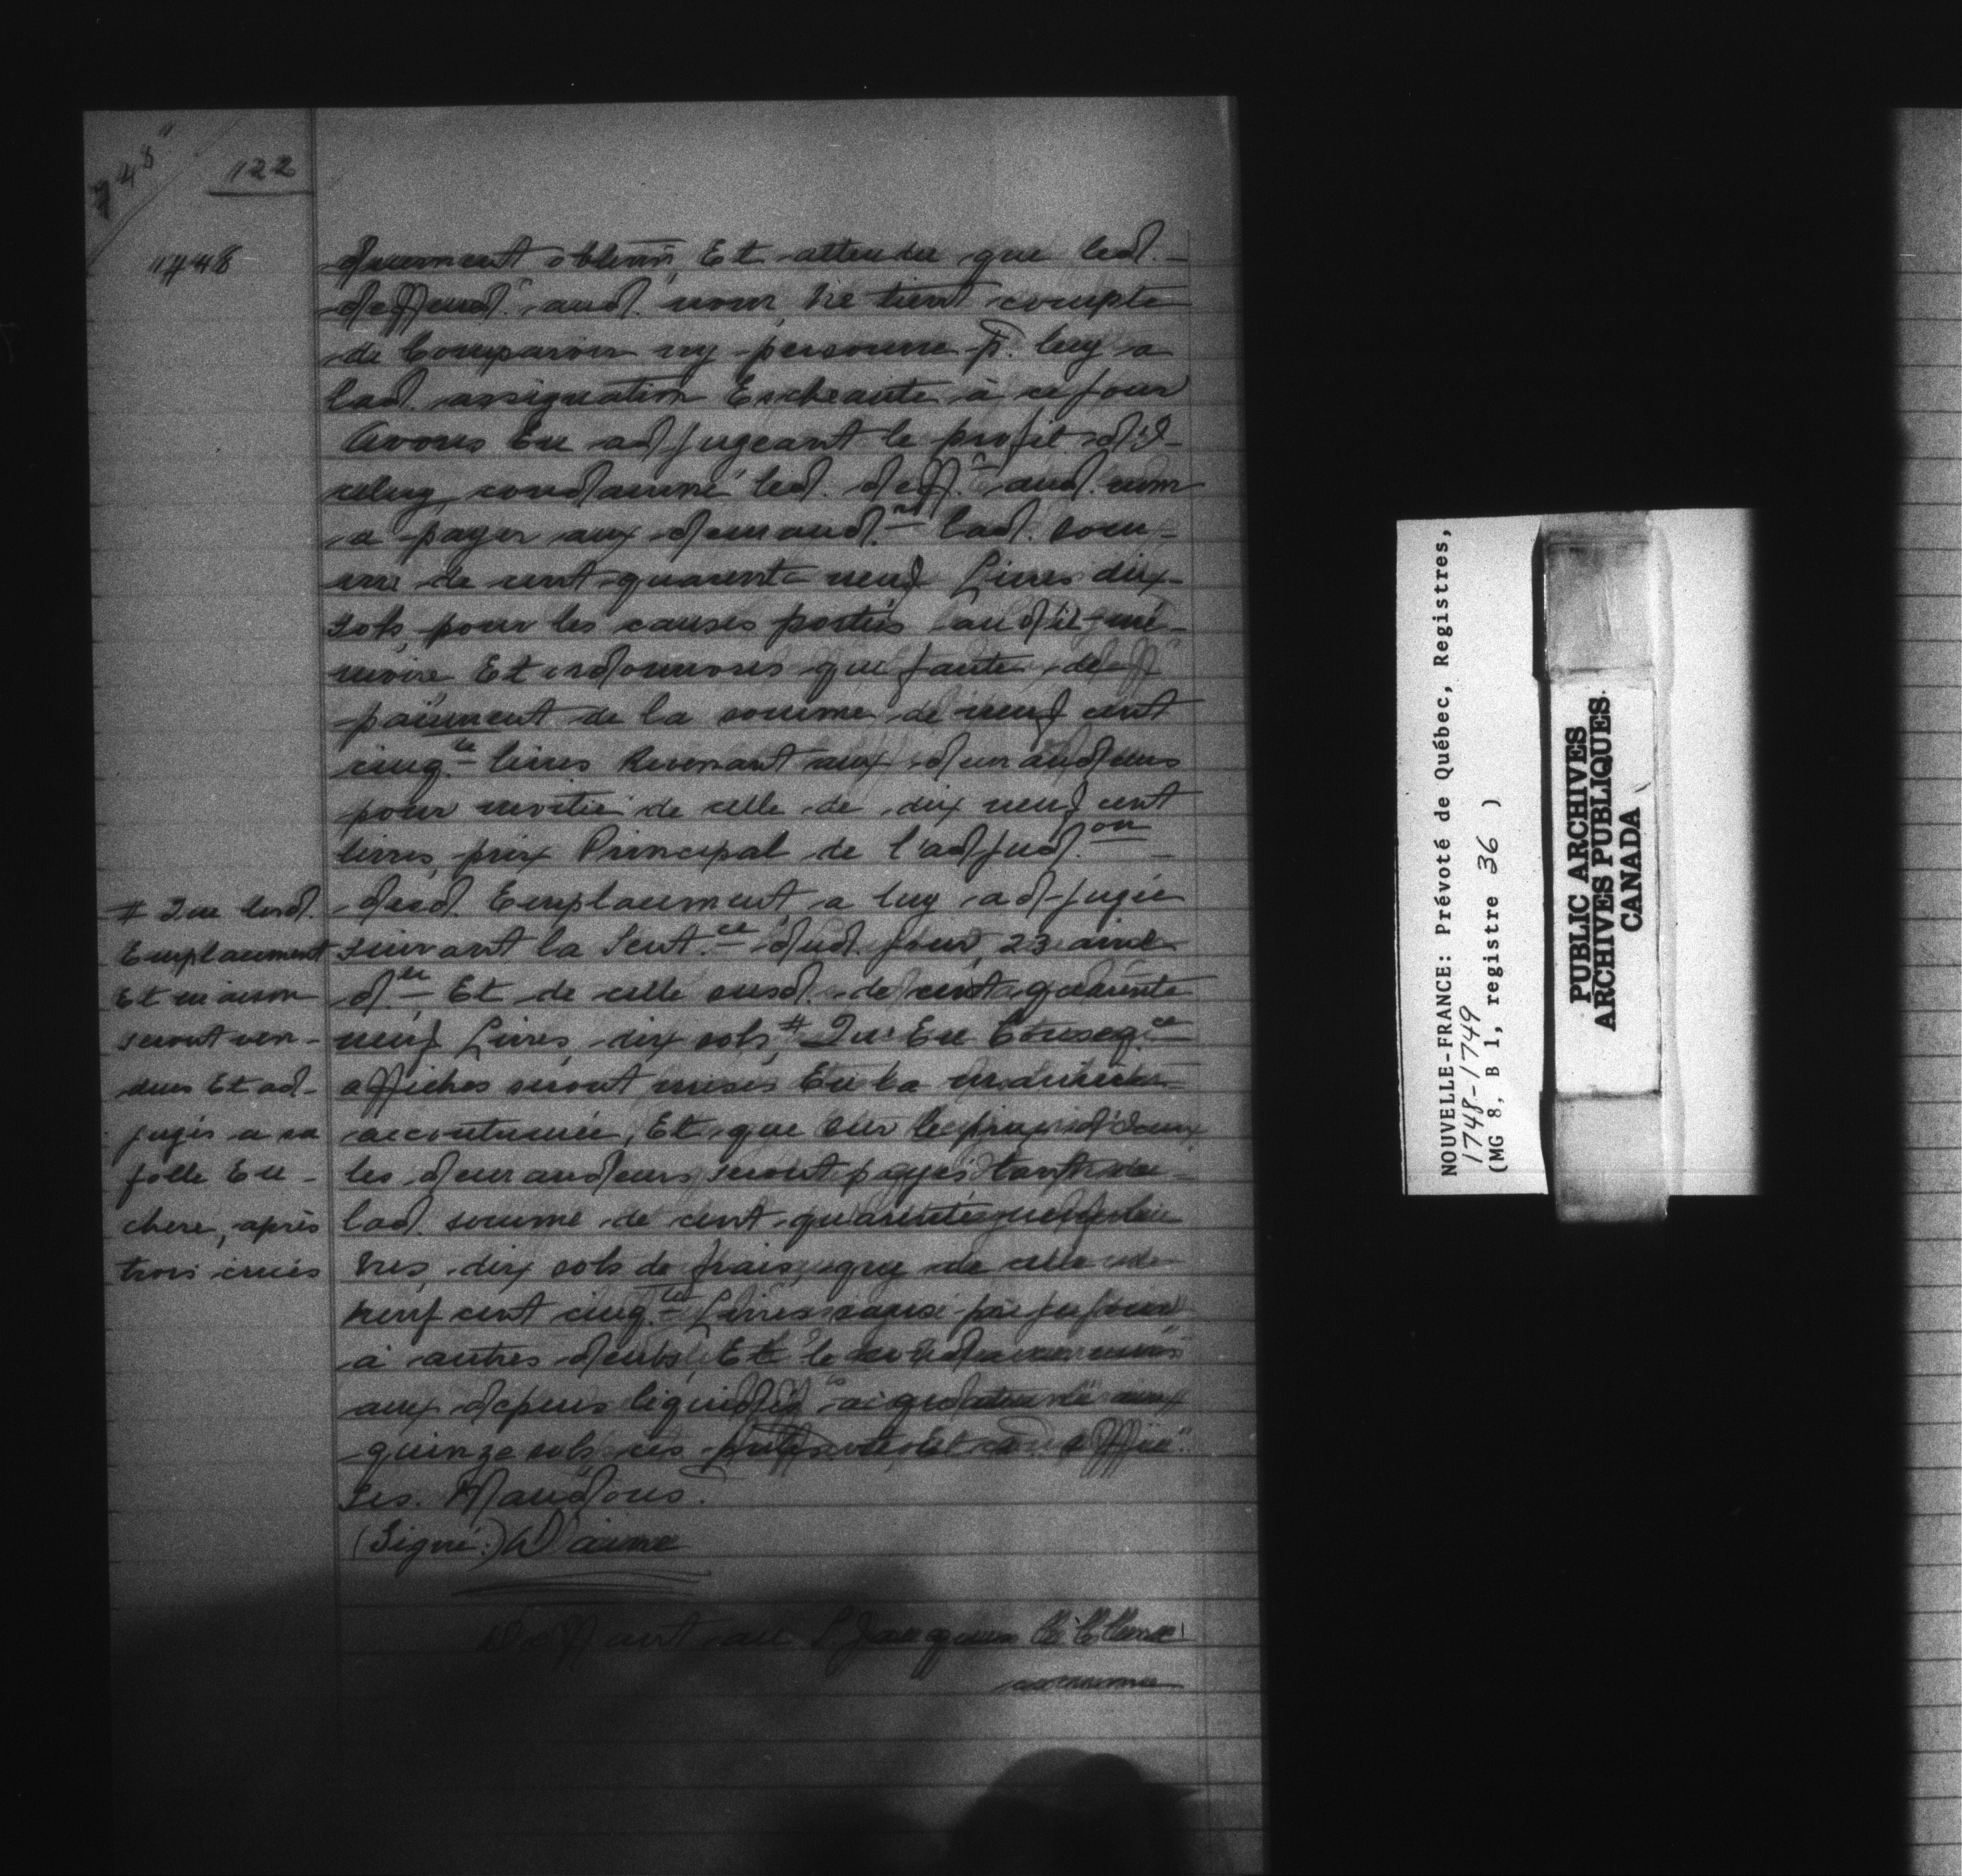 748"
122
1748
duement obtenu, Et attendu que led.
deffend. aud. nom, ne tient compte
de Comparoir ny personne p. luy a
lad. assignation Escheante à ce jour
Avons En adjugeant le profit d'I-
celuy condamné led. deff. aud. nom
a payer aux demand. lad. som-
me de cent quarente neuf Livres dix
sols pour les causes portées audit mé-
moire Et ordonnons que faute de
paiement de la somme de neuf cent
cinq.te livres Revenant aux demandeurs
pour moitié de celle de dix neuf cent
livres, prix Principal de l'adjud.on
dud. Emplacement, a luy adjugée
suivant la Sent.ce dud. jour, 23 avril
d.er Et de celle susd. de cent quarente
neuf Livres, dix sols, # Qu'En Conseq.ce
affiches seront mises En la manière
accoutumée, Et que sur le prix d'Iceux
les demandeurs seront payés tant de
lad. somme de cent quarente neuf li-
vres, dix sols de frais, que de celle de
neuf cent cinq.te Livres
à autres
aux depens liquidés
quinze sols ces Et
ses. Mandons.
(Signé:) Daine
# Que led.
Emplacement
Et maison
seront ven-
dus Et ad-
jugés a sa
folle En-
chere, après
trois criées
Deffaut au S. Jacques
NOUVELLE-FRANCE: Prévoté de Québec, Registres,
1748-1749
(MG 8, B 1, registre 36 )
PUBLIC ARCHIVES
ARCHIVES PUBLIQUES
CANADA